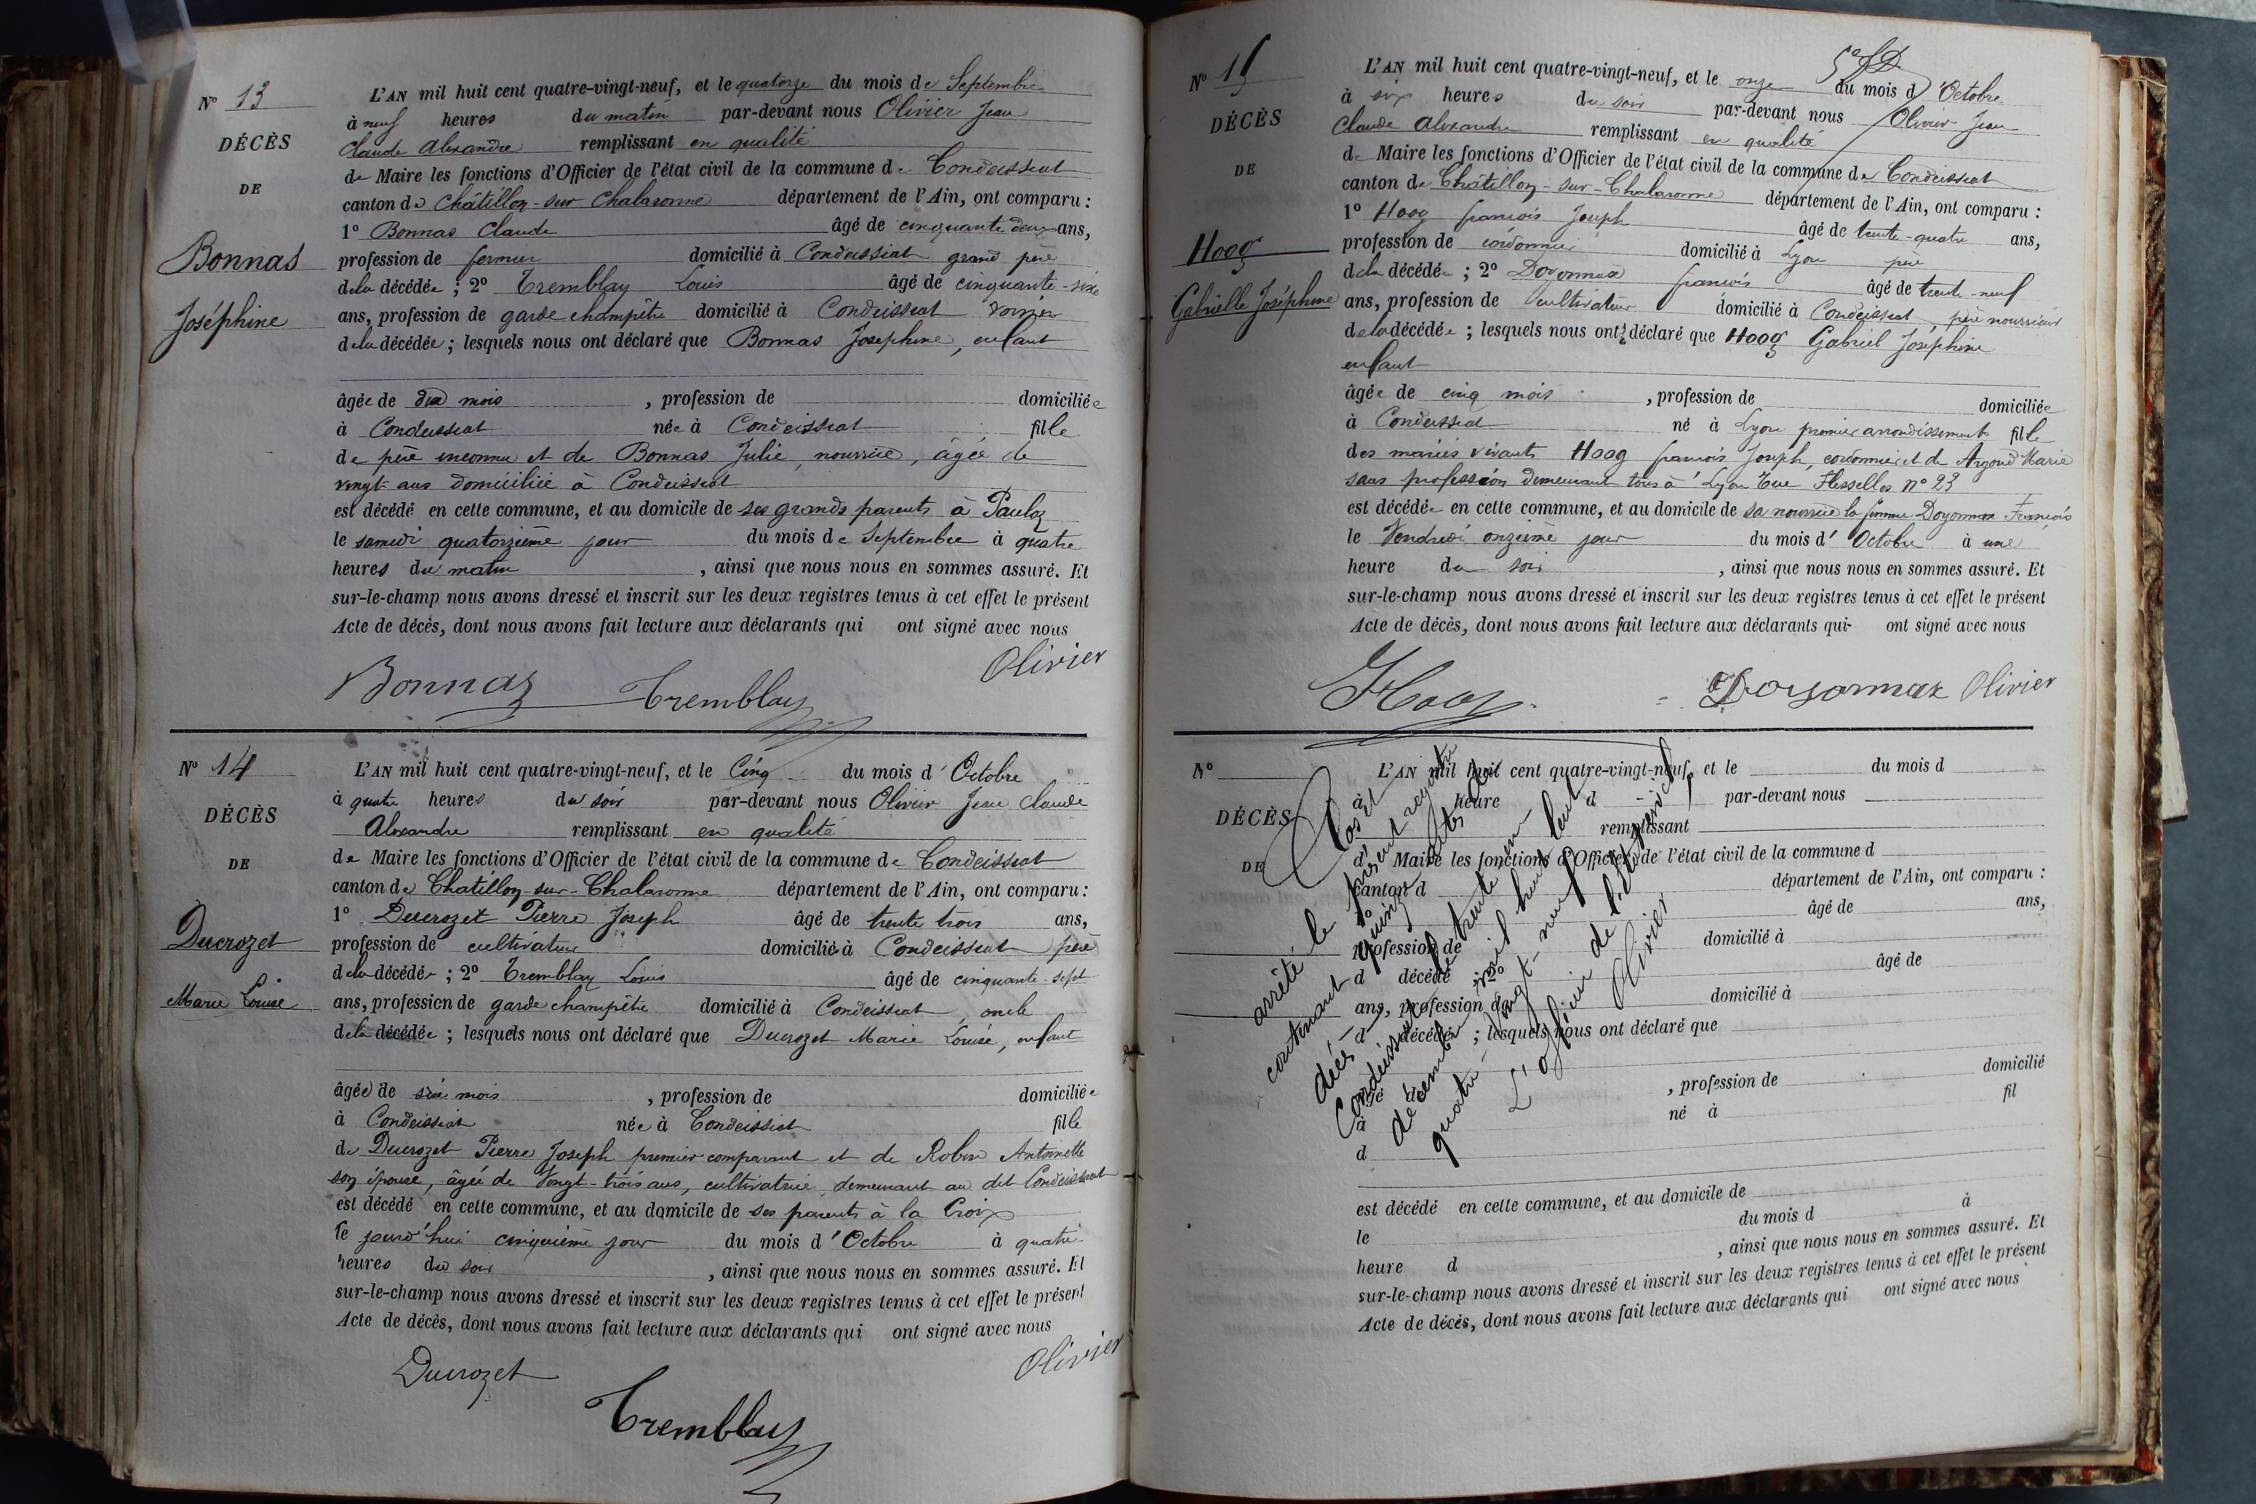 N° 13
DÉCÈS
DE
Bonnas
Joséphine
L'AN mil huit cent quatre-vingt-neuf, et le quatorze du mois de Septembre
à neuf heures du matin par-devant nous Olivier Jean
Claude Alexandre remplissant en qualité
de Maire les fonctions d'Officier de l'état civil de la commune de Condeissiat
canton de Châtillon-sur-Chalaronne département de l'Ain, ont comparu :
1° Bonnas Claude âgé de cinquante deux ans,
profession de fermier domicilié à Condeissiat grand père
de la décédée ; 2° Tremblay Louis âgé de cinquante-six
ans, profession de garde champêtre domicilié à Condeissiat voisin
de la décédée ; lesquels nous ont déclaré que Bonnas Joséphine, enfant
âgée de dix mois , profession de domiciliée
à Condeissiat née à Condeissiat fille
de père inconnu et de Bonnas Julie, nourrice, âgée de
vingt ans domiciliée à Condeissiat
est décédé en cette commune, et au domicile de ses grands parents à
le samedi quatorzième jour du mois de Septembre à quatre
heures du matin , ainsi que nous nous en sommes assuré. Et
sur-le-champ nous avons dressé et inscrit sur les deux registres tenus à cet effet le présent
Acte de décès, dont nous avons fait lecture aux déclarants qui ont signé avec nous
Bonnas Tremblay Olivier
N° 14
DÉCÈS
DE
Ducrozet
Marie Louise
L'AN mil huit cent quatre-vingt-neuf, et le Cinq du mois d'Octobre
à quatre heures du soir par-devant nous Olivier Jean Claude
Alexandre remplissant en qualité
de Maire les fonctions d'Officier de l'état civil de la commune de Condeissiat
canton de Chatillon-sur-Chalaronne département de l'Ain, ont comparu :
1° Ducrozet Pierre Joseph âgé de trente trois ans,
profession de cultivateur domicilié à Condeissiat père
de la décédée ; 2° Tremblay Louis âgé de cinquante-sept
ans, profession de garde champêtre domicilié à Condeissiat, oncle
de la décédée ; lesquels nous ont déclaré que Ducrozet Marie Louise, enfant
âgée de six mois , profession de domiciliée
à Condeissiat née à Condeissiat fille
de Ducrozet Pierre Joseph premier comparant et de Robin Antoinette
son épouse, âgée de Vingt-trois ans, cultivatrice, demeurant au dit Condeissiat
est décédé en cette commune, et au domicile de ses parents à la Croix
le jourd'hui cinquième jour du mois d'Octobre à quatre
heures du soir , ainsi que nous nous en sommes assuré. Et
sur-le-champ nous avons dressé et inscrit sur les deux registres tenus à cet effet le présent
Acte de décès, dont nous avons fait lecture aux déclarants qui ont signé avec nous
Ducrozet Olivier
Tremblay
N° 15
DÉCÈS
DE
Hoog
Gabrielle Joséphine
L'AN mil huit cent quatre-vingt-neuf, et le onze du mois d'Octobre
à six heures du soir par-devant nous Olivier Jean
Claude Alexandre remplissant en qualité
de Maire les fonctions d'Officier de l'état civil de la commune de Condeissiat
canton de Châtillon-sur-Chalaronne département de l'Ain, ont comparu :
1° Hoog françois Joseph âgé de trente-quatre ans,
profession de cordonnier domicilié à Lyon père
de la décédée ; 2° Doyonnax françois âgé de trente-neuf
ans, profession de cultivateur domicilié à Condeissiat, père nourricier
de la décédée ; lesquels nous ont déclaré que Hoog Gabriel Joséphine
enfant
âgée de cinq mois , profession de domiciliée
à Condeissiat né à Lyon premier arrondissement fille
des mariés vivants Hoog françois Joseph, cordonnier et de Argoud Marie
sans profession demeurant tous à Lyon rue Flesselles n° 23
est décédée en cette commune, et au domicile de sa nourrice la femme Doyonnax François
le Vendredi onzième jour du mois d'Octobre à une
heure du soir , ainsi que nous nous en sommes assuré. Et
sur-le-champ nous avons dressé et inscrit sur les deux registres tenus à cet effet le présent
Acte de décès, dont nous avons fait lecture aux déclarants qui ont signé avec nous
Hoog Doyonnax Olivier
N°
DÉCÈS
DE
L'AN mil huit cent quatre-vingt-neuf, et le du mois d
à heure d par-devant nous
remplissant
d Maire les fonctions d'Officier de l'état civil de la commune d
canton d département de l'Ain, ont comparu :
1° âgé de ans,
profession de domicilié à
d décédé ; 2° âgé de
ans, profession de domicilié à
d décédé ; lesquels nous ont déclaré que
âgé de , profession de domicilié
à né à fil
d
est décédé en cette commune, et au domicile de
le du mois d à
heure d , ainsi que nous nous en sommes assuré. Et
sur-le-champ nous avons dressé et inscrit sur les deux registres tenus à cet effet le présent
Acte de décès, dont nous avons fait lecture aux déclarants qui ont signé avec nous
Clos et
arrêté le présent registre
contenant quinze actes de
décès
Condeissiat le trente un
décembre mil huit cent
quatre-vingt-neuf
L'officier de l'état civil,
Olivier